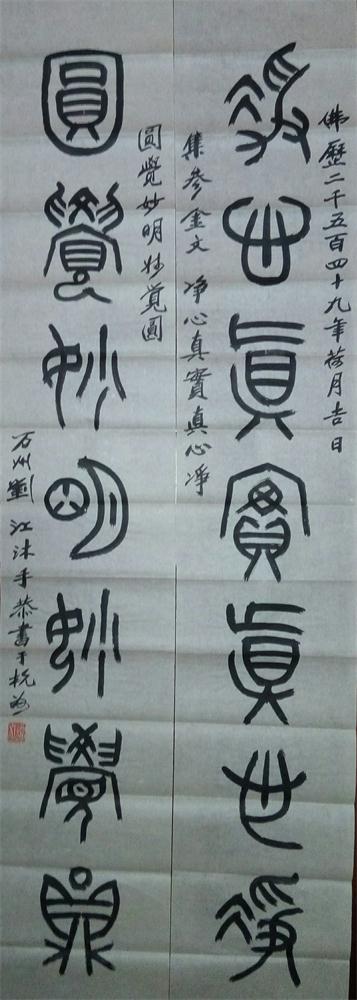 佛歷二千五百四十九年荷月吉日
淨心眞實眞心淨
集參金文 净心真實真心净
圓覺妙明妙覺圓
圓覺妙明妙覺圓
万州劉江沐手恭書于杭